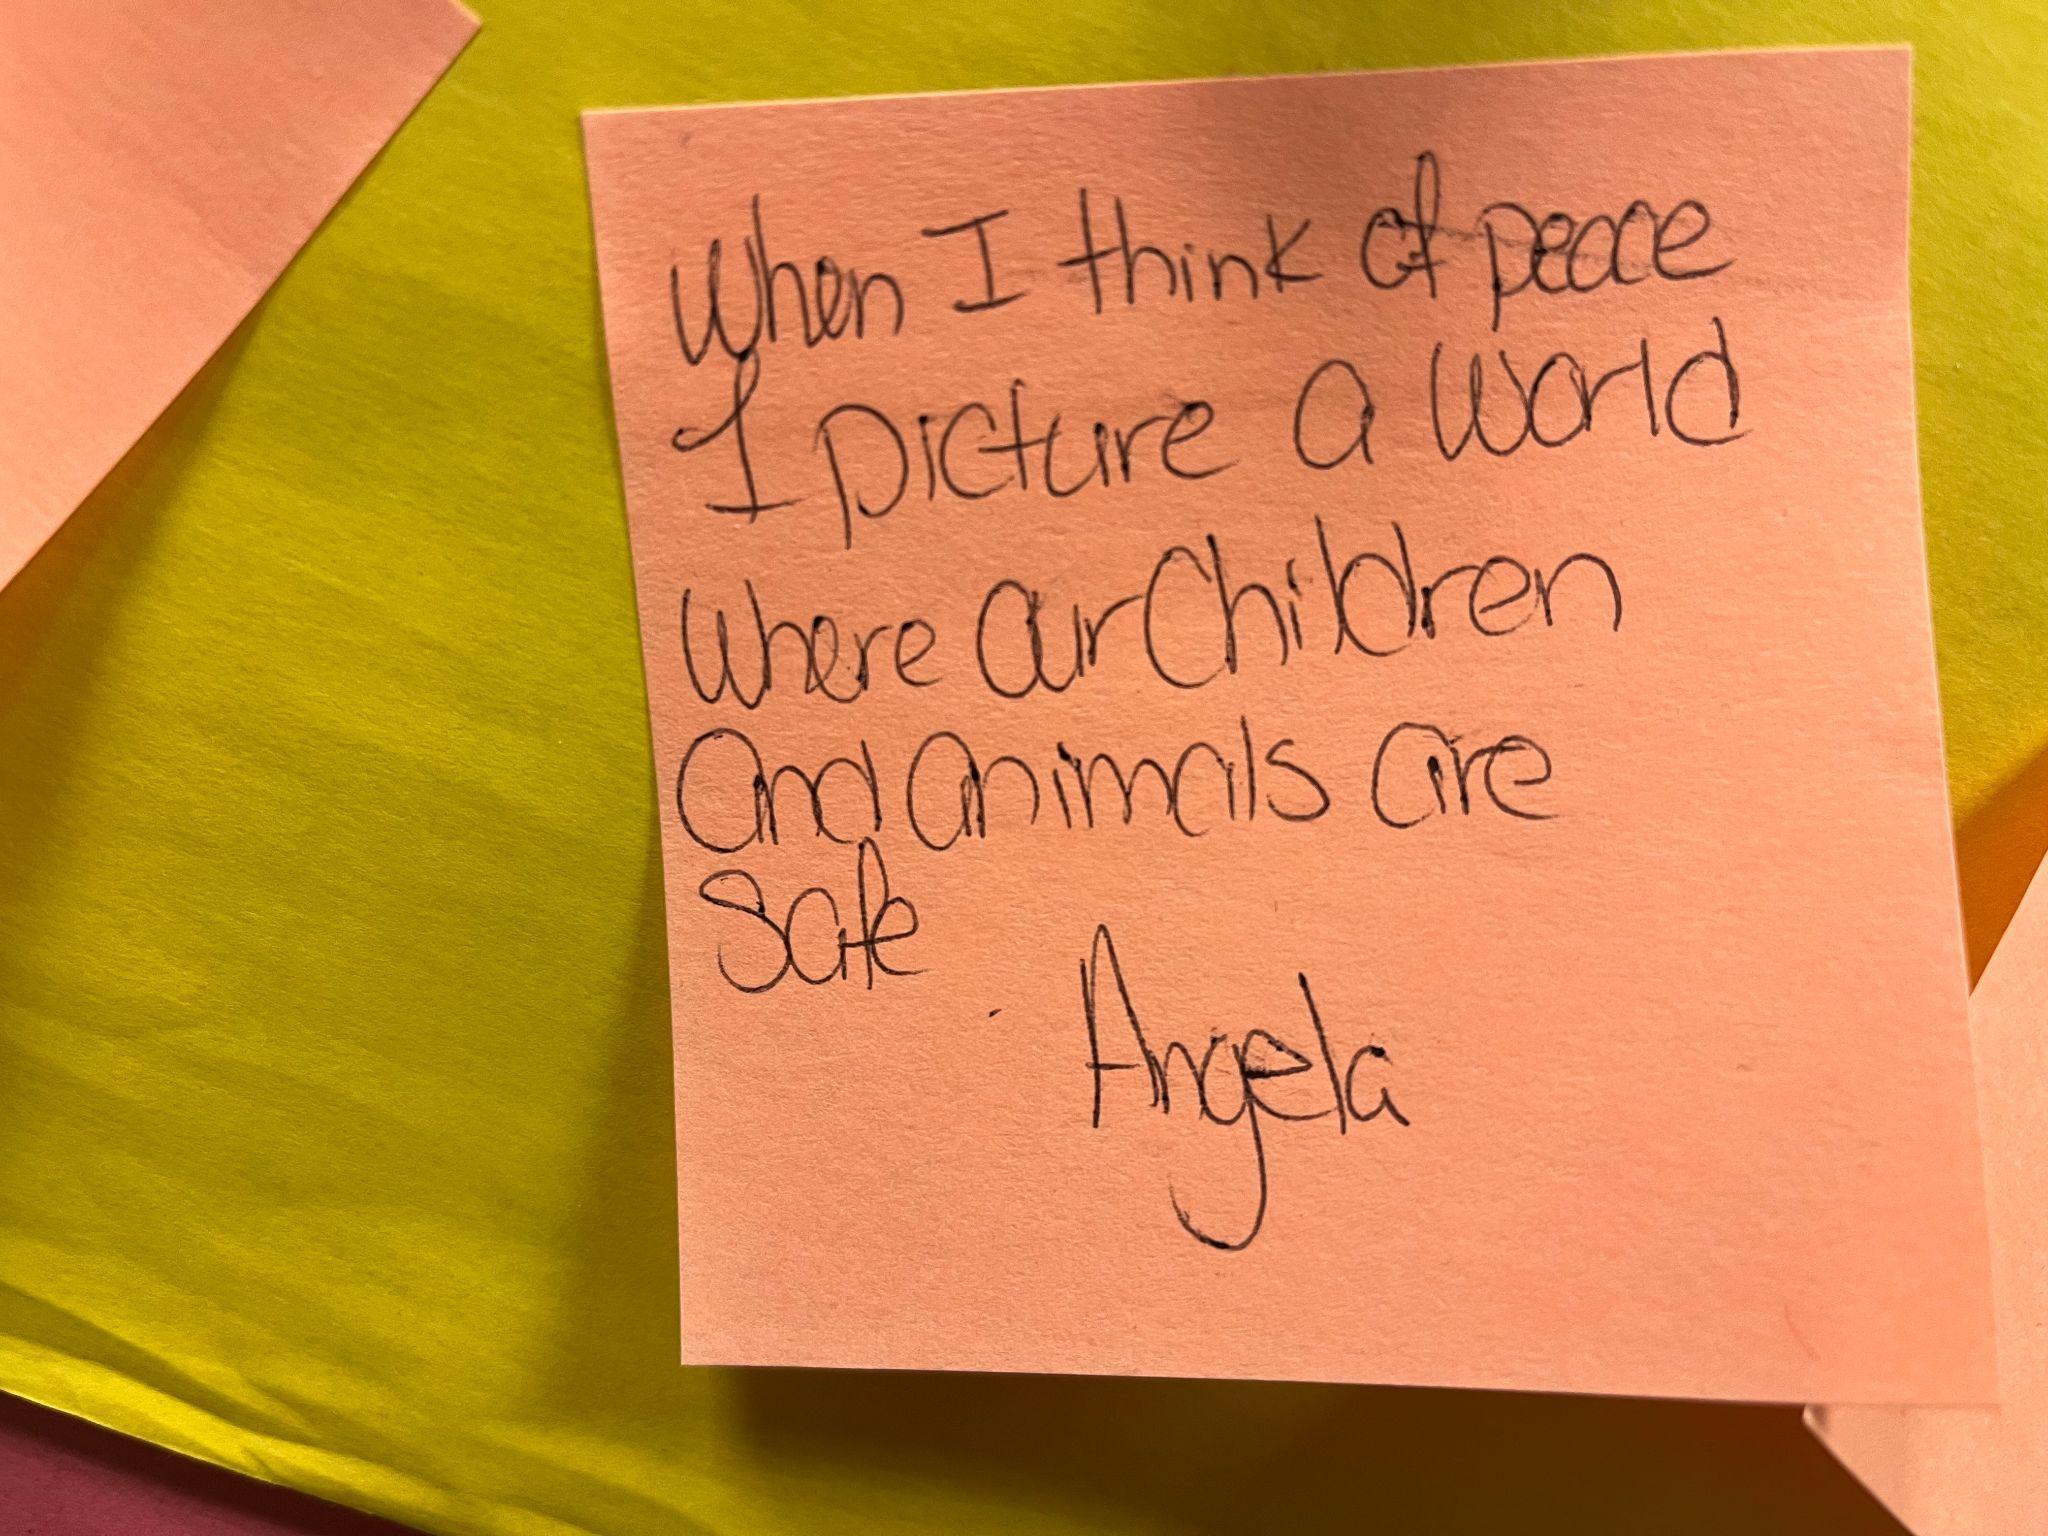 When I think of peace
I picture a world
where our Children
and animals are
Safe
Angela